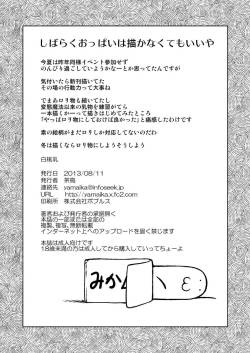 しばらくおっぱいは描かなくてもいいや
今夏は昨年同様イベント参加せず
のんびり過ごしていようかなーとか思ってたんですが
気付いたら新刊描いてた
その場の行動力って大事ね
でまあロリ物も描いてたし
変態魔法は末の乳物を練習がてら
一本描くかーって描きはじめてみたところ
「やっぱロリ物にしておけば良かった」と痛感したわけです
素の絵柄がまだロリしか対応してないのだわ
冬は描くならロリ物にしようそうしよう
白桃乳
発行日 2013/08/11
発行者 茶鳥
連絡先 yamaika@infoseek.jp
URL http://yamaika.x.fc2.com
印刷所 株式会社ポプルス
著者および発行者の承諾無く
本誌の一部または全部の
複製、複写、無断転載
インターネット上へのアップロードを固く禁じます
本誌は成人向けです
18歳未満の方は成人してから購入していってちょーよ
みか